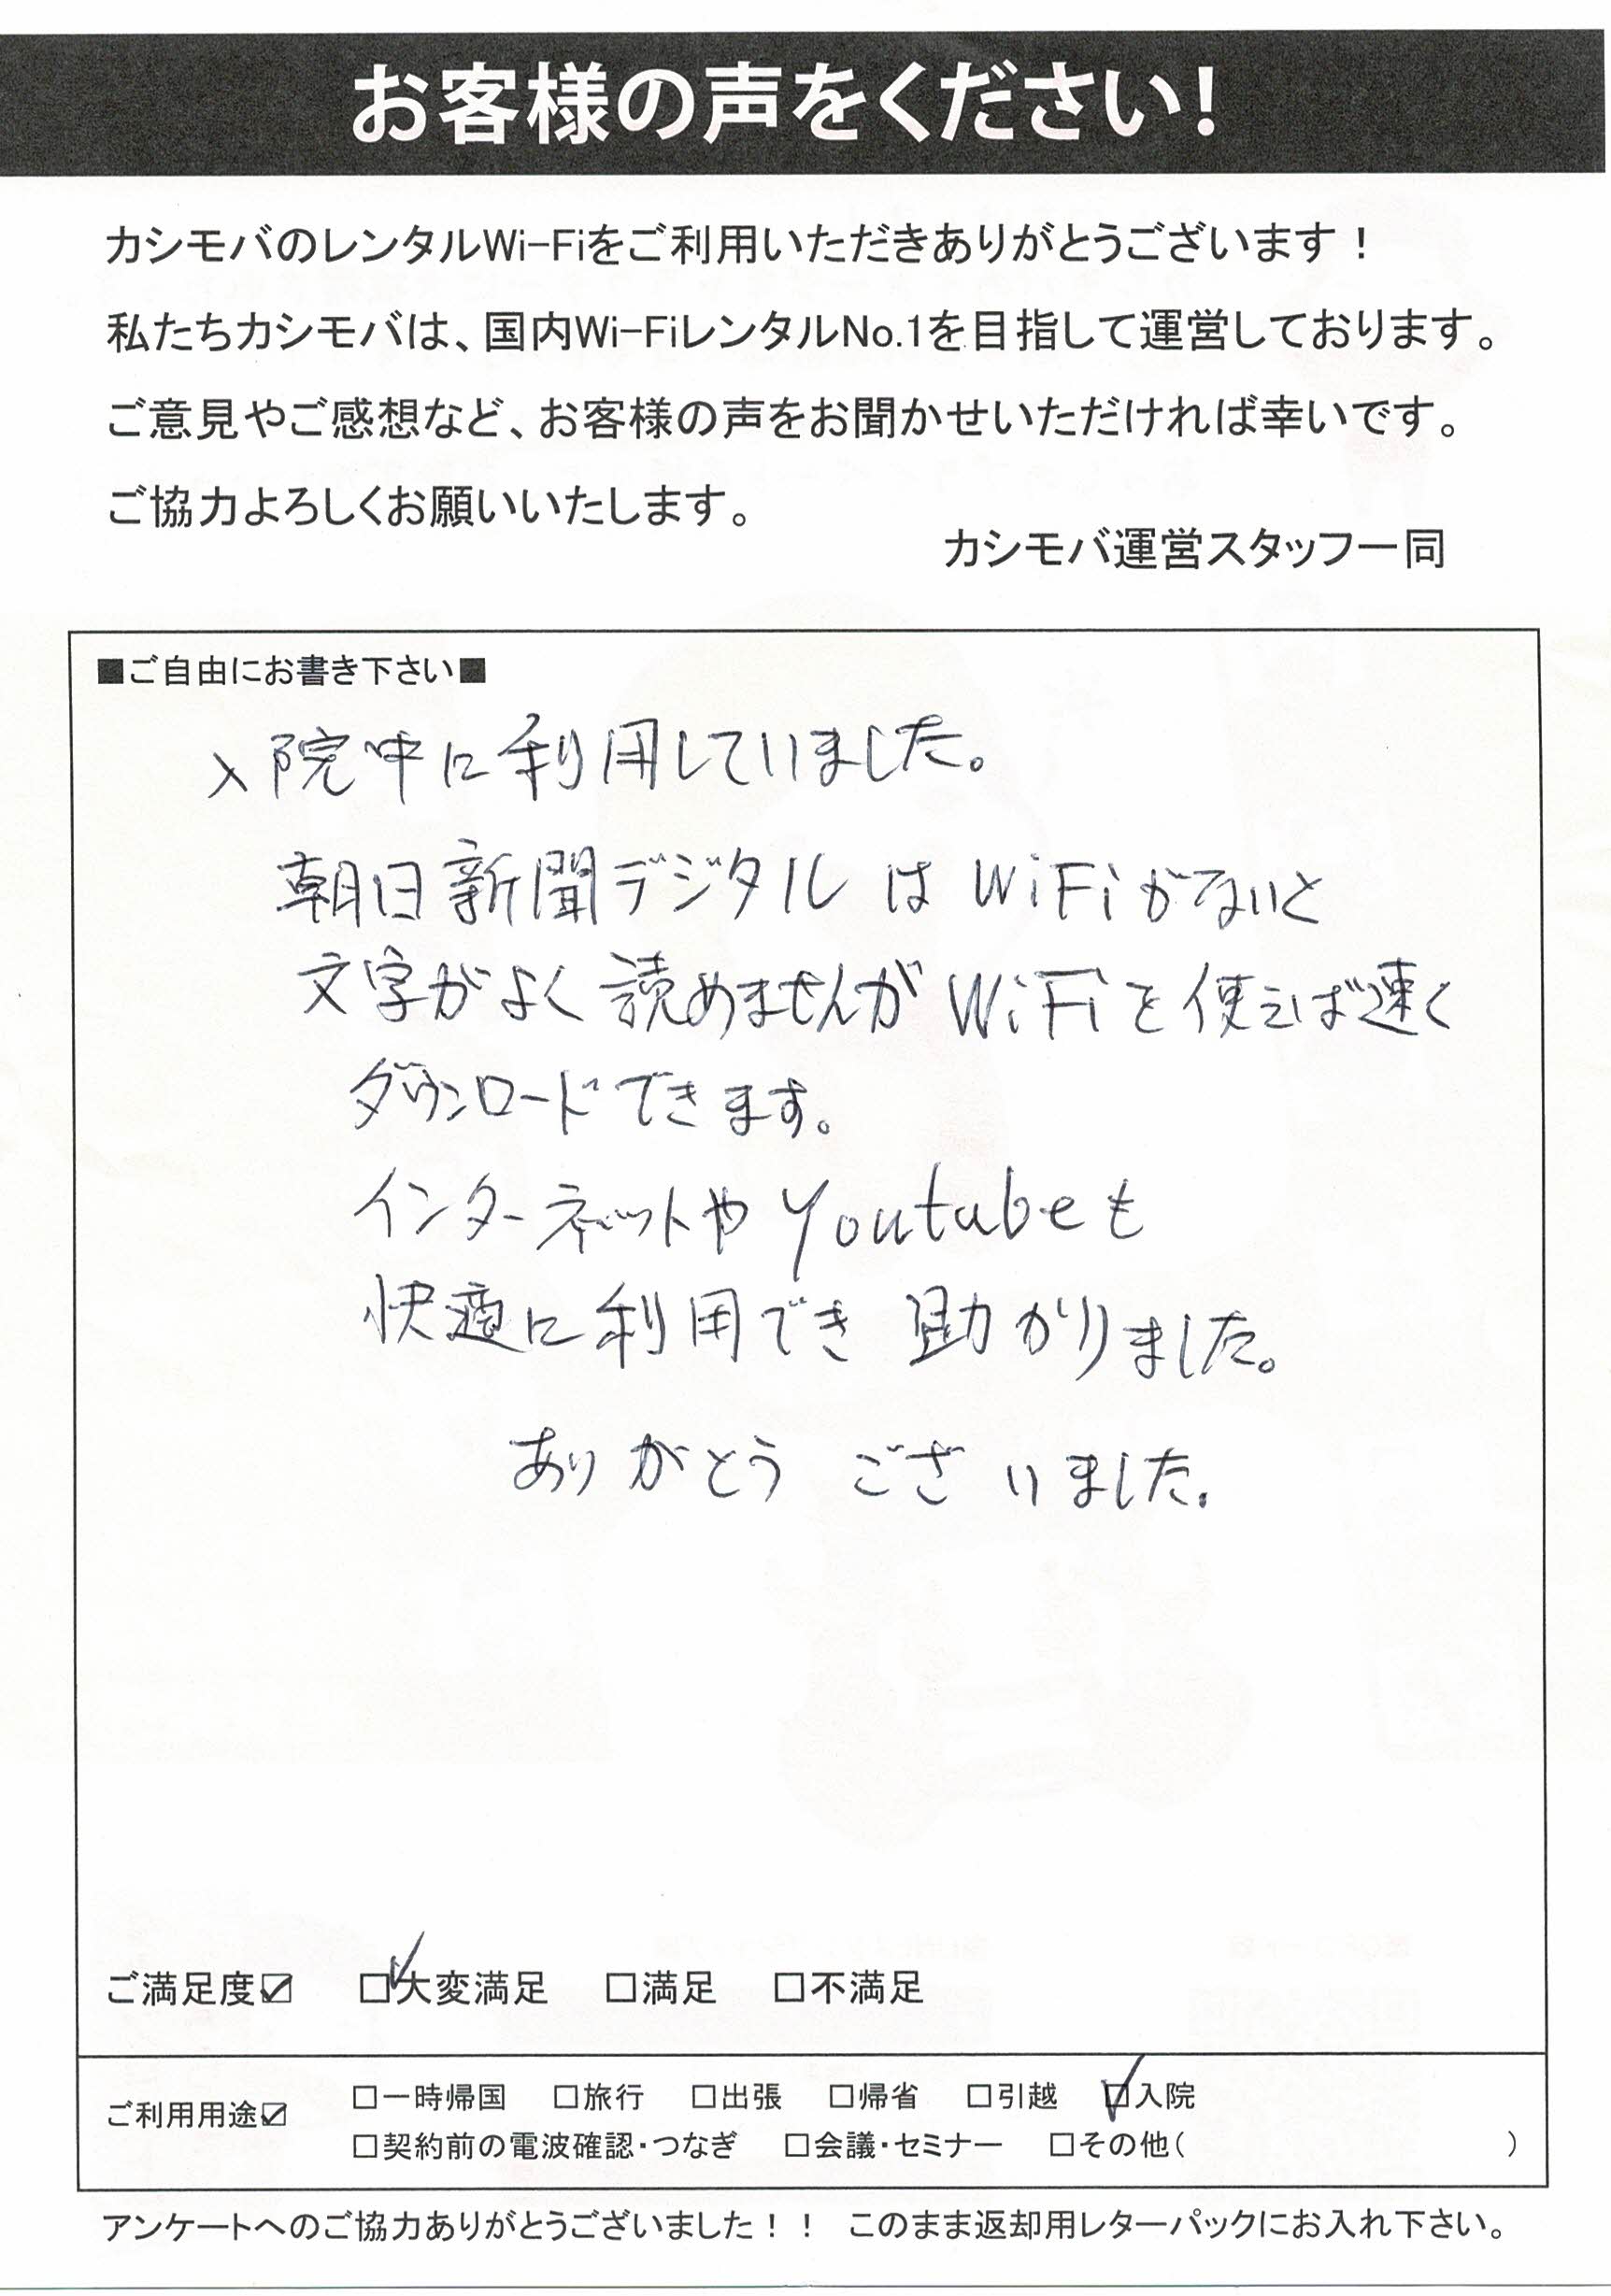 お客様の声をください!
カシモバのレンタルWi-Fiをご利用いただきありがとうございます！
私たちカシモバは、国内Wi-FiレンタルNo.1を目指して運営しております。
ご意見やご感想など、お客様の声をお聞かせいただければ幸いです。
ご協力よろしくお願いいたします。
カシモバ運営スタッフ一同
■ご自由にお書き下さい■
入院中に利用していました。
朝日新聞デジタル は WiFiがないと
文字がよく読めませんが WiFiを使えば速く
ダウンロードできます。
インターネットや Youtubeも
快適に利用でき 助かりました。
ありがとう ございました.
ご満足度☑ □大変満足 □満足 □不満足
ご利用用途☑ □一時帰国 □旅行 □出張 □帰省 □引越 □入院
□契約前の電波確認・つなぎ □会議・セミナー □その他( )
アンケートへのご協力ありがとうございました！！ このまま返却用レターパックにお入れ下さい。